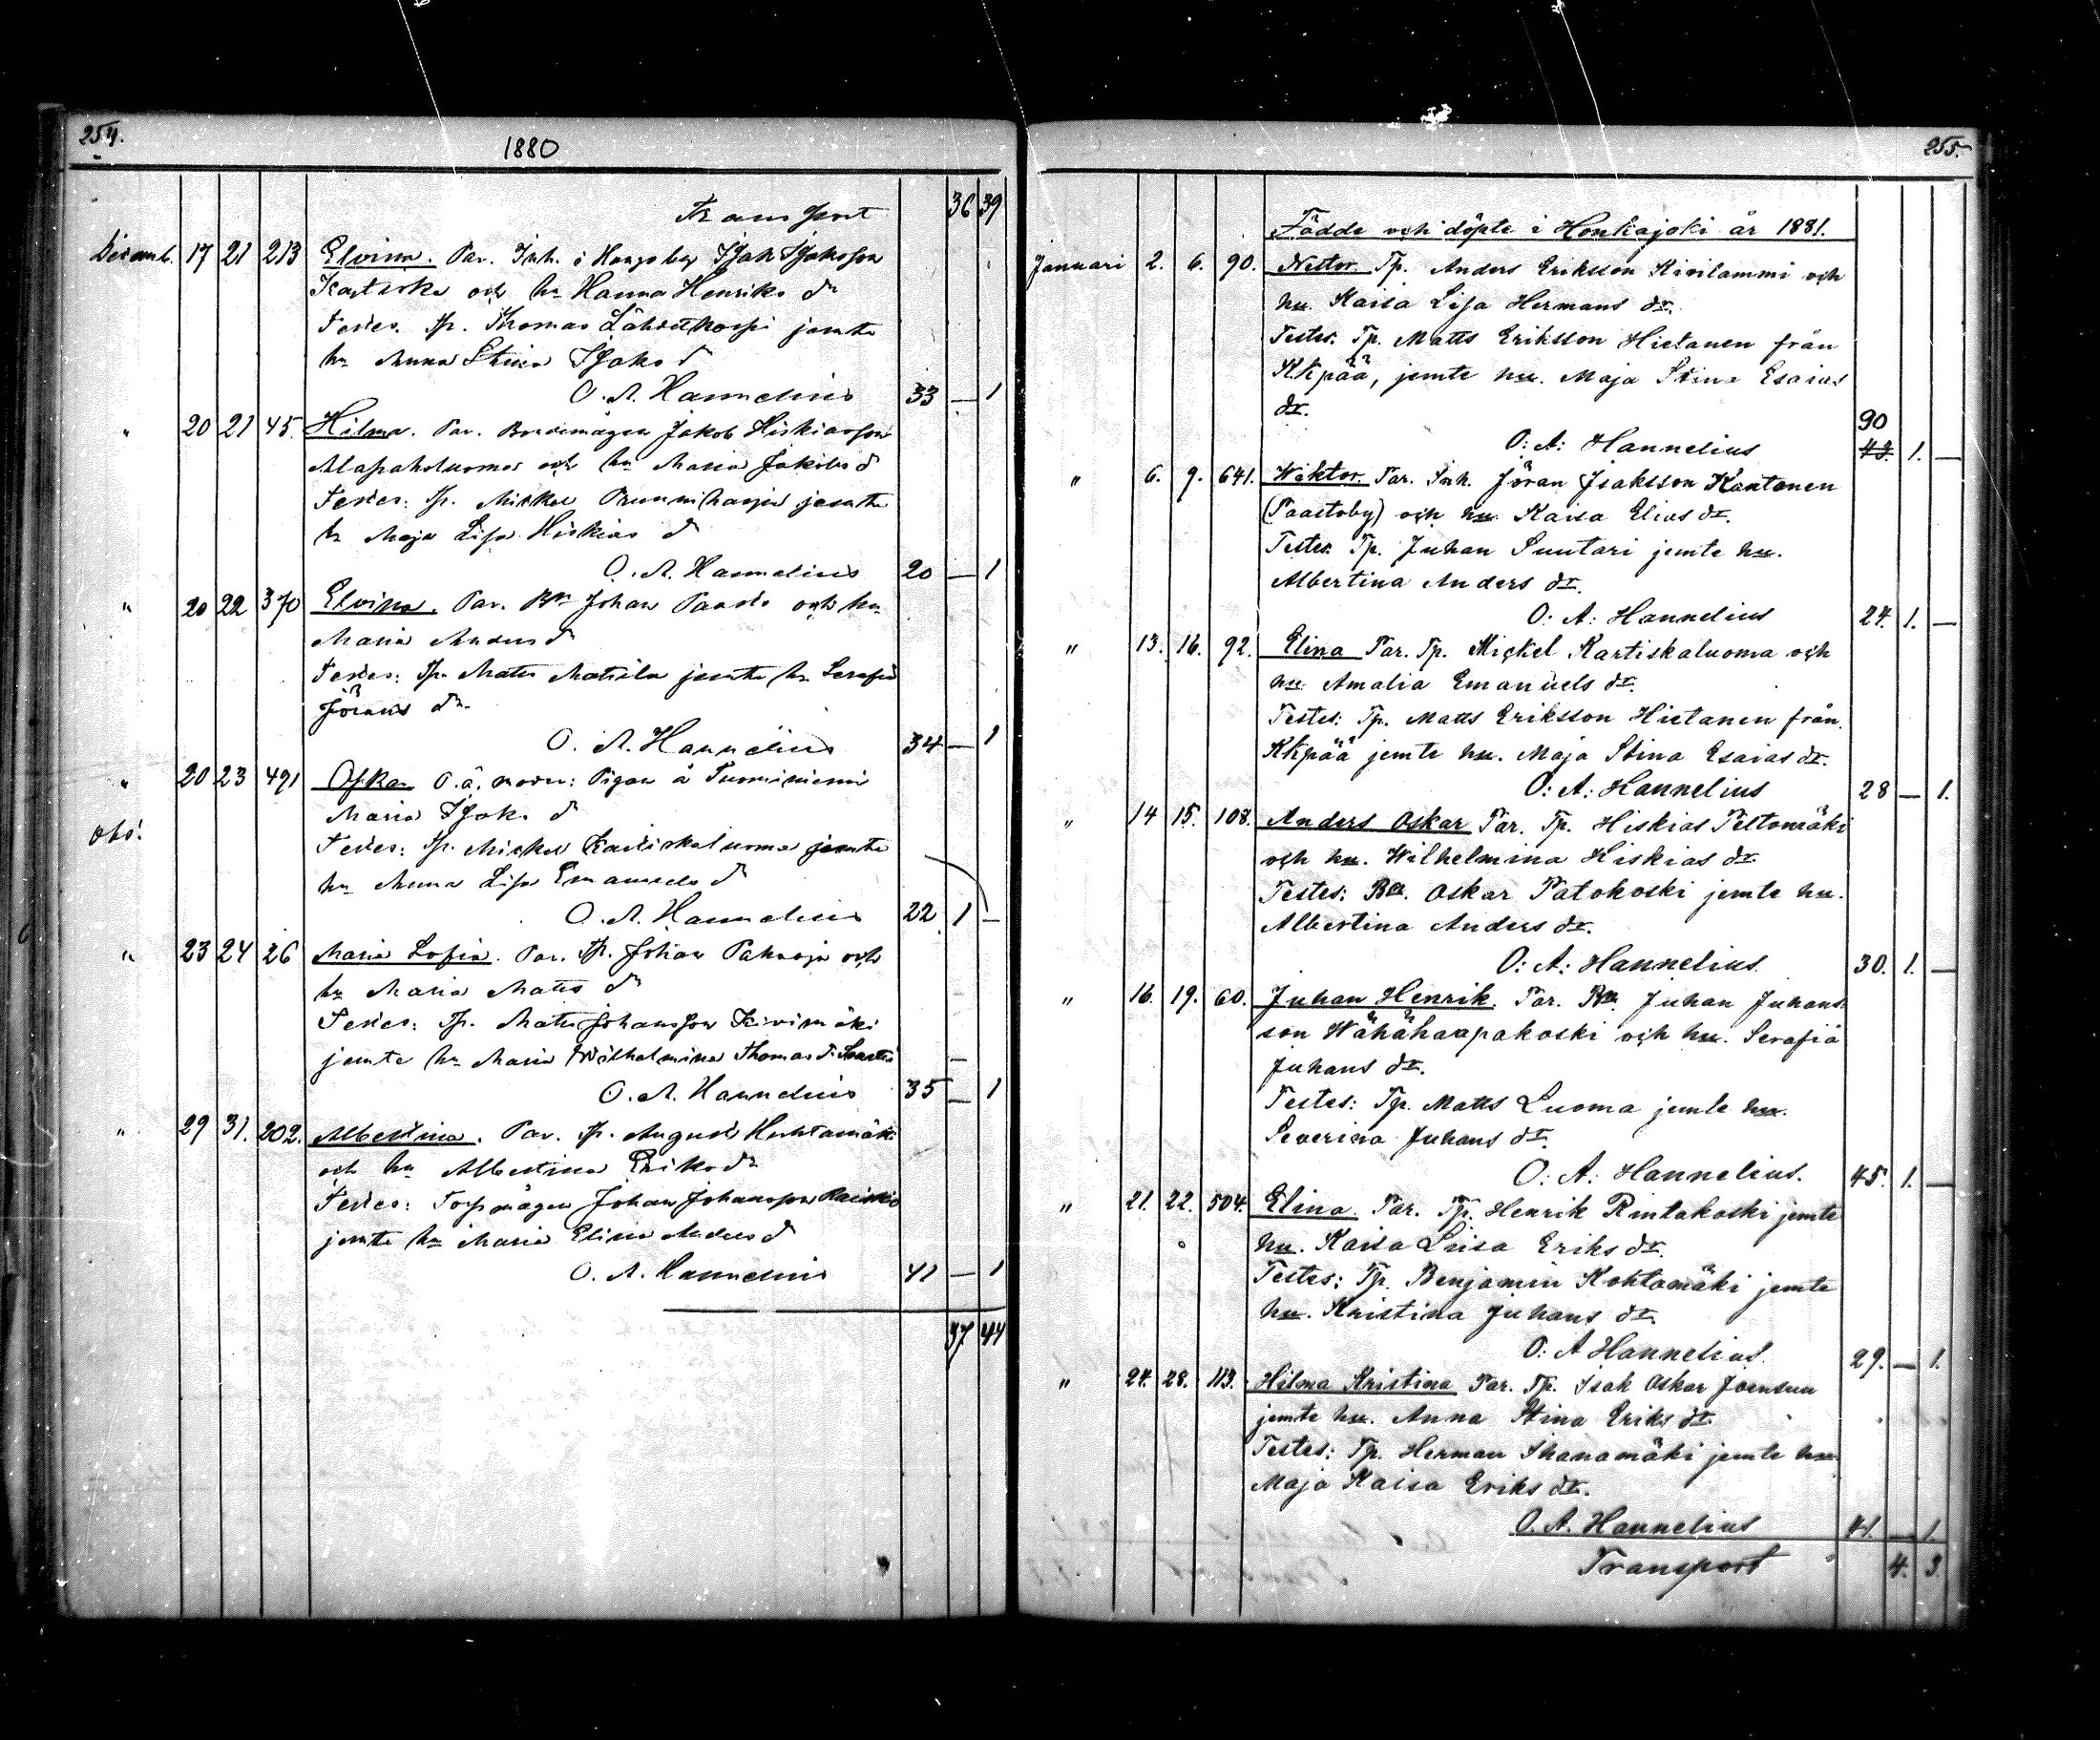 254.
1880
Transport 36 39
Decemb. 17 21 213 Elvina. Par. Inh. i Hongoby Isak Isaksson
Kartiska och hu Hanna Henriks dr
Testes. Tp. Thomas Lähdekorpi jemte
hu Anna Stina Isaks dr
O. A. Hannelius 33 — 1
" 20 21 45. Hilma. Par. Bondemågen Jakob Hiskiasson
Alapaholuoma och hu Maria Jakobs dr
Testes: Tp. Mickel Prunniharju jemte
h. Maja Lisa Hiskias dr
O. A. Hannelius 20 — 1
" 20 22 370 Elvina. Par. Bn Johan Paasto och hu
Maria Anders dr
Testes: Tp. Matts Mattila jemte hu Serafia
Jörans dr.
O. A. Hannelius 34 — 1
" 20 23 491 Oskar O. ä. moder: Pigan å Tuominiemi
Maria Isaks dr
obs! Testes: Tp. Mickel Kartiskaluoma jemte
hu Anna Lisa Emanuels dr
O. A. Hannelius 22 1 —
" 23 24 26 Maria Sofia. Par. Tp. Johan Pahaoja och
hu Maria Matts dr
Testes: Tp. Matts Johansson Kivimäki
jemte hu Maria Wilhelmina Thomas dr
O. A. Hannelius 35 — 1
" 29 31. 202. Albertina. Par. Tp. August Huhtamäki
och hu Albertina Eriks dr
Testes: Torpmågen Johan Johansson
jemte hu Maria Elina Anders dr
O. A. Hannelius 41 — 1
37 44
255.
Födde och döpte i Honkajoki år 1881.
Januari 2. 6. 90. Nestor Tp. Anders Eriksson Kivilammi och
hu. Kaisa Lisa Hermans dr.
Testes: Tp. Matts Eriksson Hietanen från
Kkpää, jemte hu. Maja Stina Esaias
dr. 90
O: A: Hannelius 43. 1. —
" 6. 9. 641. Wiktor. Par. Inh. Jöran Isaksson Kantonen
(Paastoby) och hu. Kaisa Elias dr.
Testes. Tp. Juhan Suutari jemte hu.
Albertina Anders dr.
O: A: Hannelius 24. 1. —
" 13. 16. 92. Elina Par. Tp. Mickel Kartiskaluoma och
hu. Amalia Emanuels dr.
Testes: Tp. Matts Eriksson Hietanen från
Kkpää jemte hu. Maja Stina Esaias dr.
O: A: Hannelius 28 — 1.
" 14 15. 108. Anders Oskar Par. Tp. Hiskias Peltomäki
och hu. Wilhelmina Hiskias dr.
Testes: Bn. Oskar Patokoski jemte hu.
Albertina Anders dr.
O: A: Hannelius 30. 1. —
" 16. 19. 60. Juhan Henrik. Par. Bn. Juhan Juhans-
son Wähähaapakoski och hu. Serafia
Juhans dr.
Testes: Tp. Matts Luoma jemte hu.
Severina Juhans dr.
O: A: Hannelius. 45. 1. —
" 21. 22. 504. Elina. Par. Tp. Henrik Rintakoski jemte
hu. Kaisa Luisa Eriks dr.
Testes: Tp. Benjamin Kohtamäki jemte
hu. Kristina Juhans dr.
O: A Hannelius. 29. — 1.
" 24. 28. 113. Hilma Kristina Par. Tp. Isak Oskar Joensuu
jemte hu. Anna Stina Eriks dr.
Testes: Tp. Herman Ihanamäki jemte hu
Maja Kaisa Eriks dr.
O. A. Hannelius 41. — 1.
Transport 4. 3.